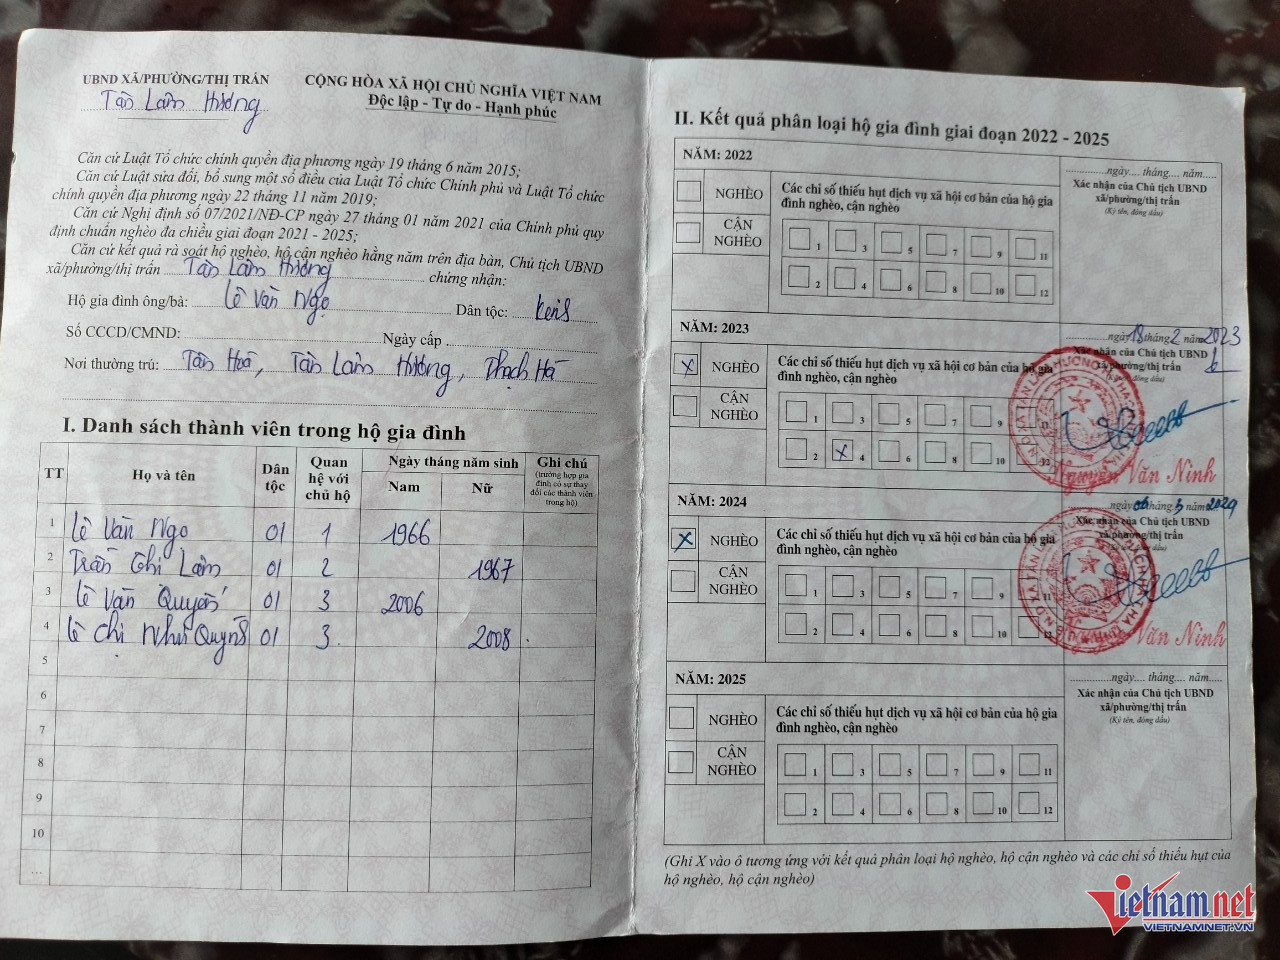 UBND XÃ/PHƯỜNG/THỊ TRẤN
Tân Lâm Hương
CỘNG HÒA XÃ HỘI CHỦ NGHĨA VIỆT NAM
Độc lập - Tự do - Hạnh phúc
Căn cứ Luật Tổ chức chính quyền địa phương ngày 19 tháng 6 năm 2015;
Căn cứ Luật sửa đổi, bổ sung một số điều của Luật Tổ chức Chính phủ và Luật Tổ chức
chính quyền địa phương ngày 22 tháng 11 năm 2019;
Căn cứ Nghị định số 07/2021/NĐ-CP ngày 27 tháng 01 năm 2021 của Chính phủ quy
định chuẩn nghèo đa chiều giai đoạn 2021 - 2025;
Căn cứ kết quả rà soát hộ nghèo, hộ cận nghèo hằng năm trên địa bàn, Chủ tịch UBND
xã/phường/thị trấn Tân Lâm Hương chứng nhận:
Hộ gia đình ông/bà: Lê Văn Ngọ Dân tộc: Kinh
Số CCCD/CMND: Ngày cấp
Nơi thường trú: Tân Hoà, Tân Lâm Hương, Thạch Hà
I. Danh sách thành viên trong hộ gia đình
TT Họ và tên Dân tộc Quan hệ với chủ hộ Ngày tháng năm sinh Nam Nữ Ghi chú (trường hợp gia đình có sự thay đổi các thành viên trong hộ)
1 Lê Văn Ngọ 01 1 1966
2 Trần Thị Lâm 01 2 1967
3 Lê Văn Quyến 01 3 2006
4 Lê Thị Như Quỳnh 01 3 2008
5
6
7
8
9
10
...
II. Kết quả phân loại hộ gia đình giai đoạn 2022 - 2025
NĂM: 2022
ngày.... tháng.... năm.....
Xác nhận của Chủ tịch UBND
xã/phường/thị trấn
(Ký tên, đóng dấu)
NGHÈO
CẬN NGHÈO
Các chỉ số thiếu hụt dịch vụ xã hội cơ bản của hộ gia
đình nghèo, cận nghèo
1 3 5 7 9 11
2 4 6 8 10 12
NĂM: 2023
ngày 18 tháng 2 năm 2023
Xác nhận của Chủ tịch UBND
xã/phường/thị trấn
(Ký tên, đóng dấu)
X NGHÈO
CẬN NGHÈO
Các chỉ số thiếu hụt dịch vụ xã hội cơ bản của hộ gia
đình nghèo, cận nghèo
1 3 5 7 9 11
2 X 4 6 8 10 12
Nguyễn Văn Ninh
NĂM: 2024
ngày 06 tháng 3 năm 2024
Xác nhận của Chủ tịch UBND
xã/phường/thị trấn
X NGHÈO
CẬN NGHÈO
Các chỉ số thiếu hụt dịch vụ xã hội cơ bản của hộ gia
đình nghèo, cận nghèo
1 3 5 7 9 11
2 4 6 8 10 12
Văn Ninh
NĂM: 2025
ngày.... tháng.... năm.....
Xác nhận của Chủ tịch UBND
xã/phường/thị trấn
(Ký tên, đóng dấu)
NGHÈO
CẬN NGHÈO
Các chỉ số thiếu hụt dịch vụ xã hội cơ bản của hộ gia
đình nghèo, cận nghèo
1 3 5 7 9 11
2 4 6 8 10 12
(Ghi X vào ô tương ứng với kết quả phân loại hộ nghèo, hộ cận nghèo và các chỉ số thiếu hụt của
hộ nghèo, hộ cận nghèo)
Vietnamnet
VIETNAMNET.VN